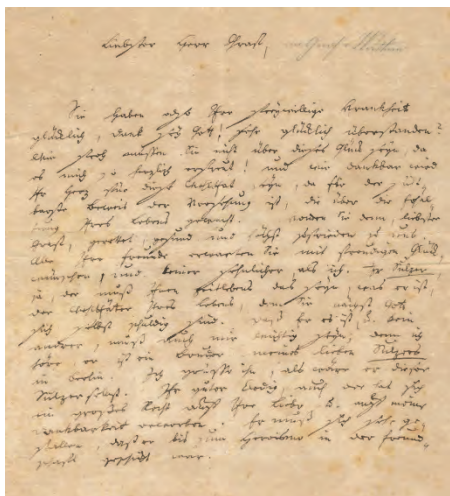 Liebster Herr Graf,
Sie haben also Ihre freywillige Krankheit
glücklich, Dank sey Gott! sehr glücklich überstanden?
Wie froh müssen Sie nicht über dieses Glück seyn, da
es mich so herzlich erfreut! und wie dankbar wird
Ihr Herz für diese Wohlthat seyn, da sie der
Beweis der Vorsehung ist, die über die
Ihres Lebens gewacht. werden Sie denn, liebster
Graf, gesund und zufrieden zu uns
Alle Ihre Freunde erwarten Sie mit freudigen Glück-
wünschen, und keiner sehnlicher, als ich. Hr Sulzer,
ja, der muß Ihr seyn, was er ist,
der Wohlthäter Ihres Lebens, den Sie nächst Gott
sich selbst schuldig sind. Daß Er es ist, u. kein
andrer, muß auch mir wichtig seyn, denn ich
höre er ist ein Bruder meines lieben Sulzers
in Berlin. Ich grüße ihn, als wäre er dieser
Sulzer selbst. Ihr guter auch der hat sich
ein großes Recht auf Ihre Liebe u. auf meine
Dankbarkeit erworben. Er muß sich
daß er bis zum in der Freund-
schaft war.